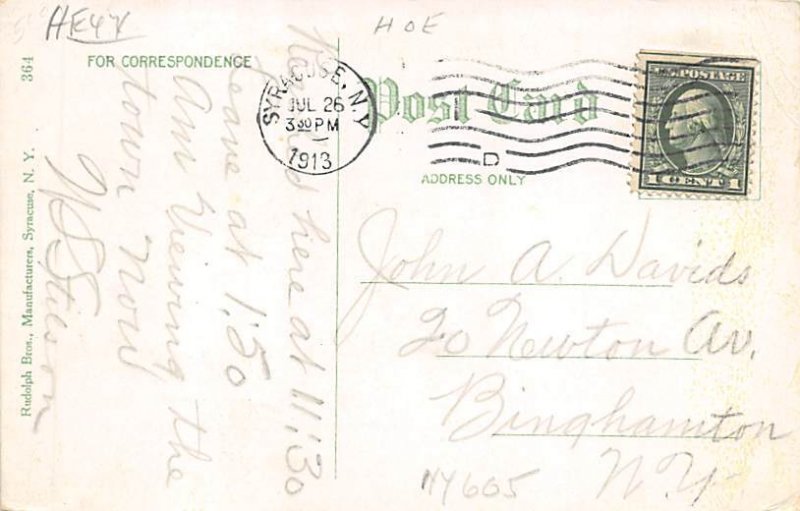 HE4X
HOE
FOR CORRESPONDENCE
Post Card
ADDRESS ONLY
SYRACUSE, N.Y.
JUL 26
3 30 PM
1913
D
U.S. POSTAGE
1 CENT 1
here at 11:30
Leave at 1:50
Am Viewing the
town Now
John A. Davids
20 Newton Av.
Binghamton
N.Y.
NY605
Rudolph Bros., Manufacturers, Syracuse, N. Y.
364